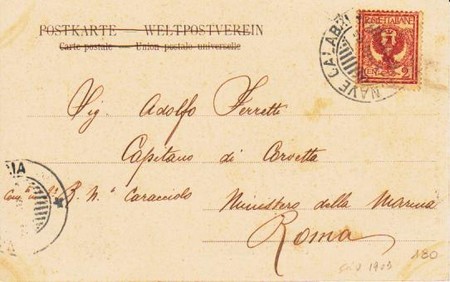 POSTKARTE — WELTPOSTVEREIN
Carte postale — Union postale universelle
NAVE CALABRIA
POSTE ITALIANE
2
Sig Adolfo Ferretti
Capitano di Corvetta
R. N. Caracciolo
Ministero della Marina
Roma
IA
1903
180